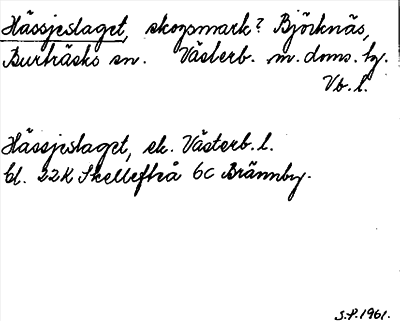 Hässjeslaget, skogsmark? Björknäs,
Burträsks sn. Västerb. m. doms. tg.
Vb. l.
Hässjeslaget, ek. Västerb. l.
bl. 22K Skellefteå 6C Brännby.
S.P. 1961.